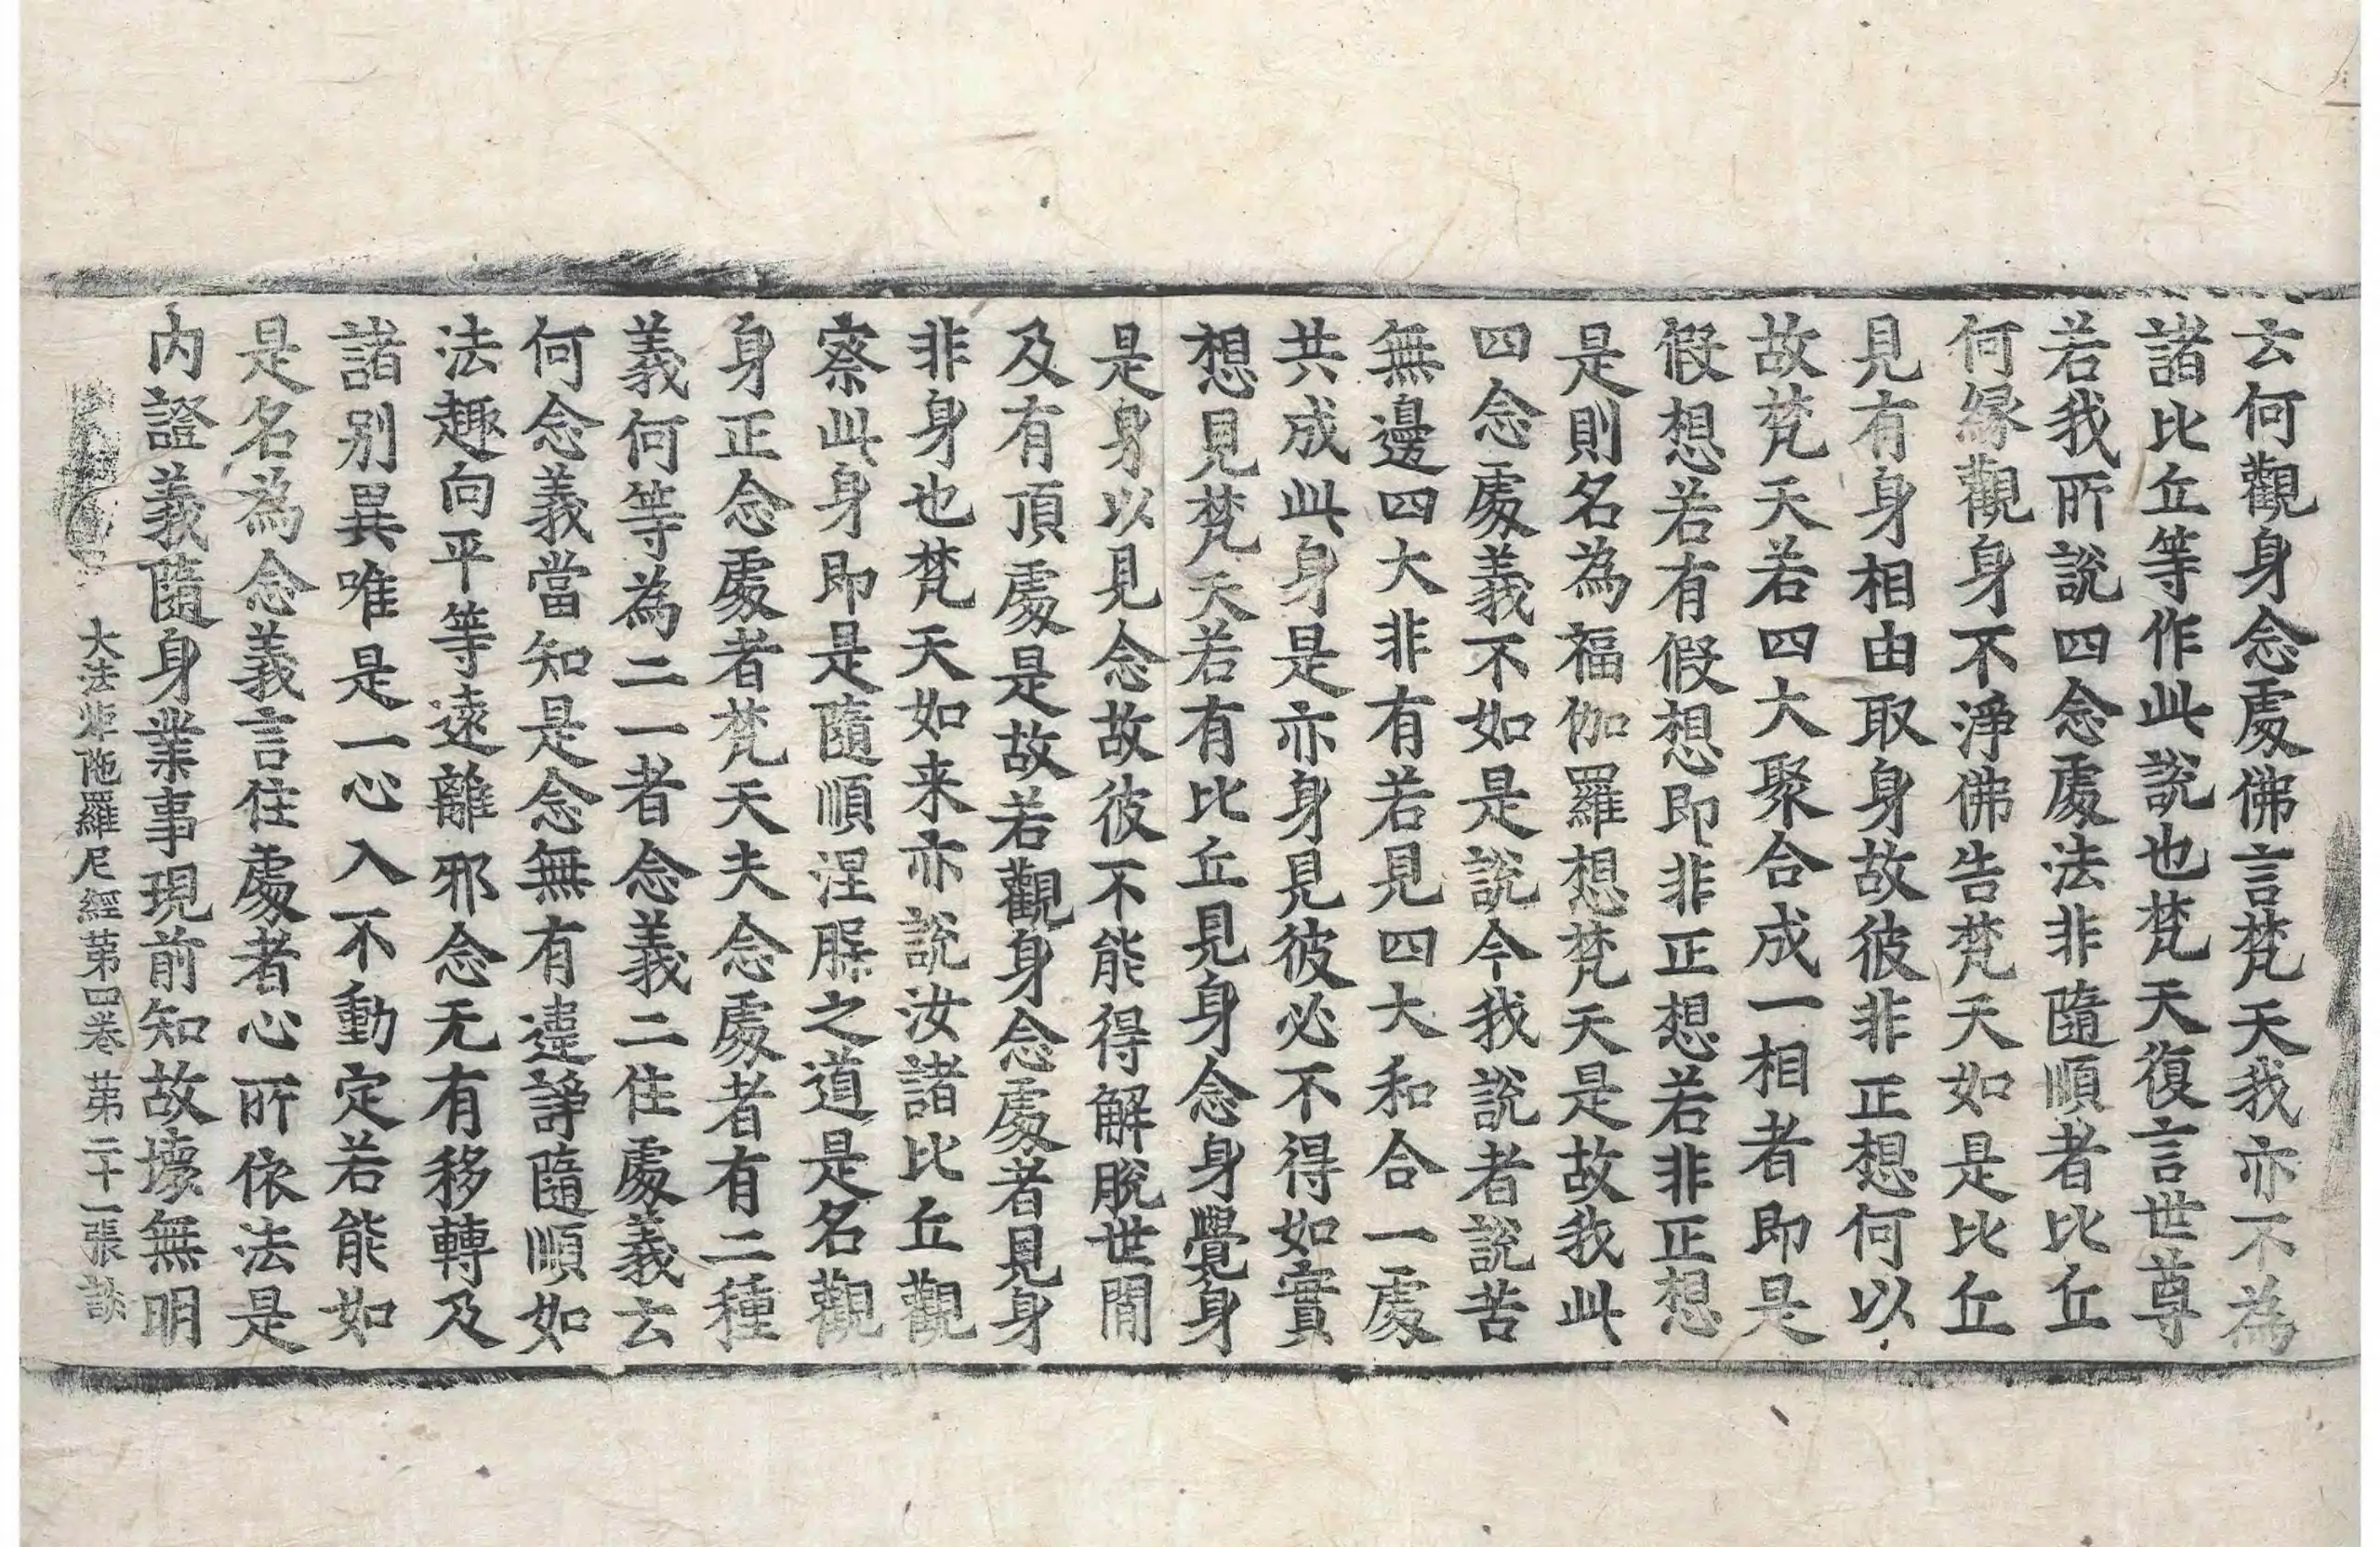 云何觀身念處佛言梵天我亦不為
諸比丘等作此說也梵天復言世尊
若我所說四念處法非隨順者比丘
何緣觀身不淨佛告梵天如是比丘
見有身相由取身故彼非正想何以
故梵天若四大聚合成一相者即是
假想若有假想即非正想若非正想
是則名為福伽羅想梵天是故我此
四念處義不如是說今我說者說苦
無邊四大非有若見四大和合一處
共成此身是亦身見彼必不得如實
想見梵天若有比丘見身念身覺身
是身以見念故彼不能得解脫世間
及有頂處是故若觀身念處者見身
非身也梵天如来亦說汝諸比丘觀
察此身即是隨順涅脲之道是名觀
身正念處者梵天夫念處者有二種
義何等為二一者念義二住處義云
何念義當知是念無有違諍隨順如
法趣向平等遠離邪念无有移轉及
諸別異唯是一心入不動定若能如
是名為念義言住處者心所依法是
內證義隨身業事現前知故壞無明
大法炬陁羅尼經苐四卷 苐二十一張 談